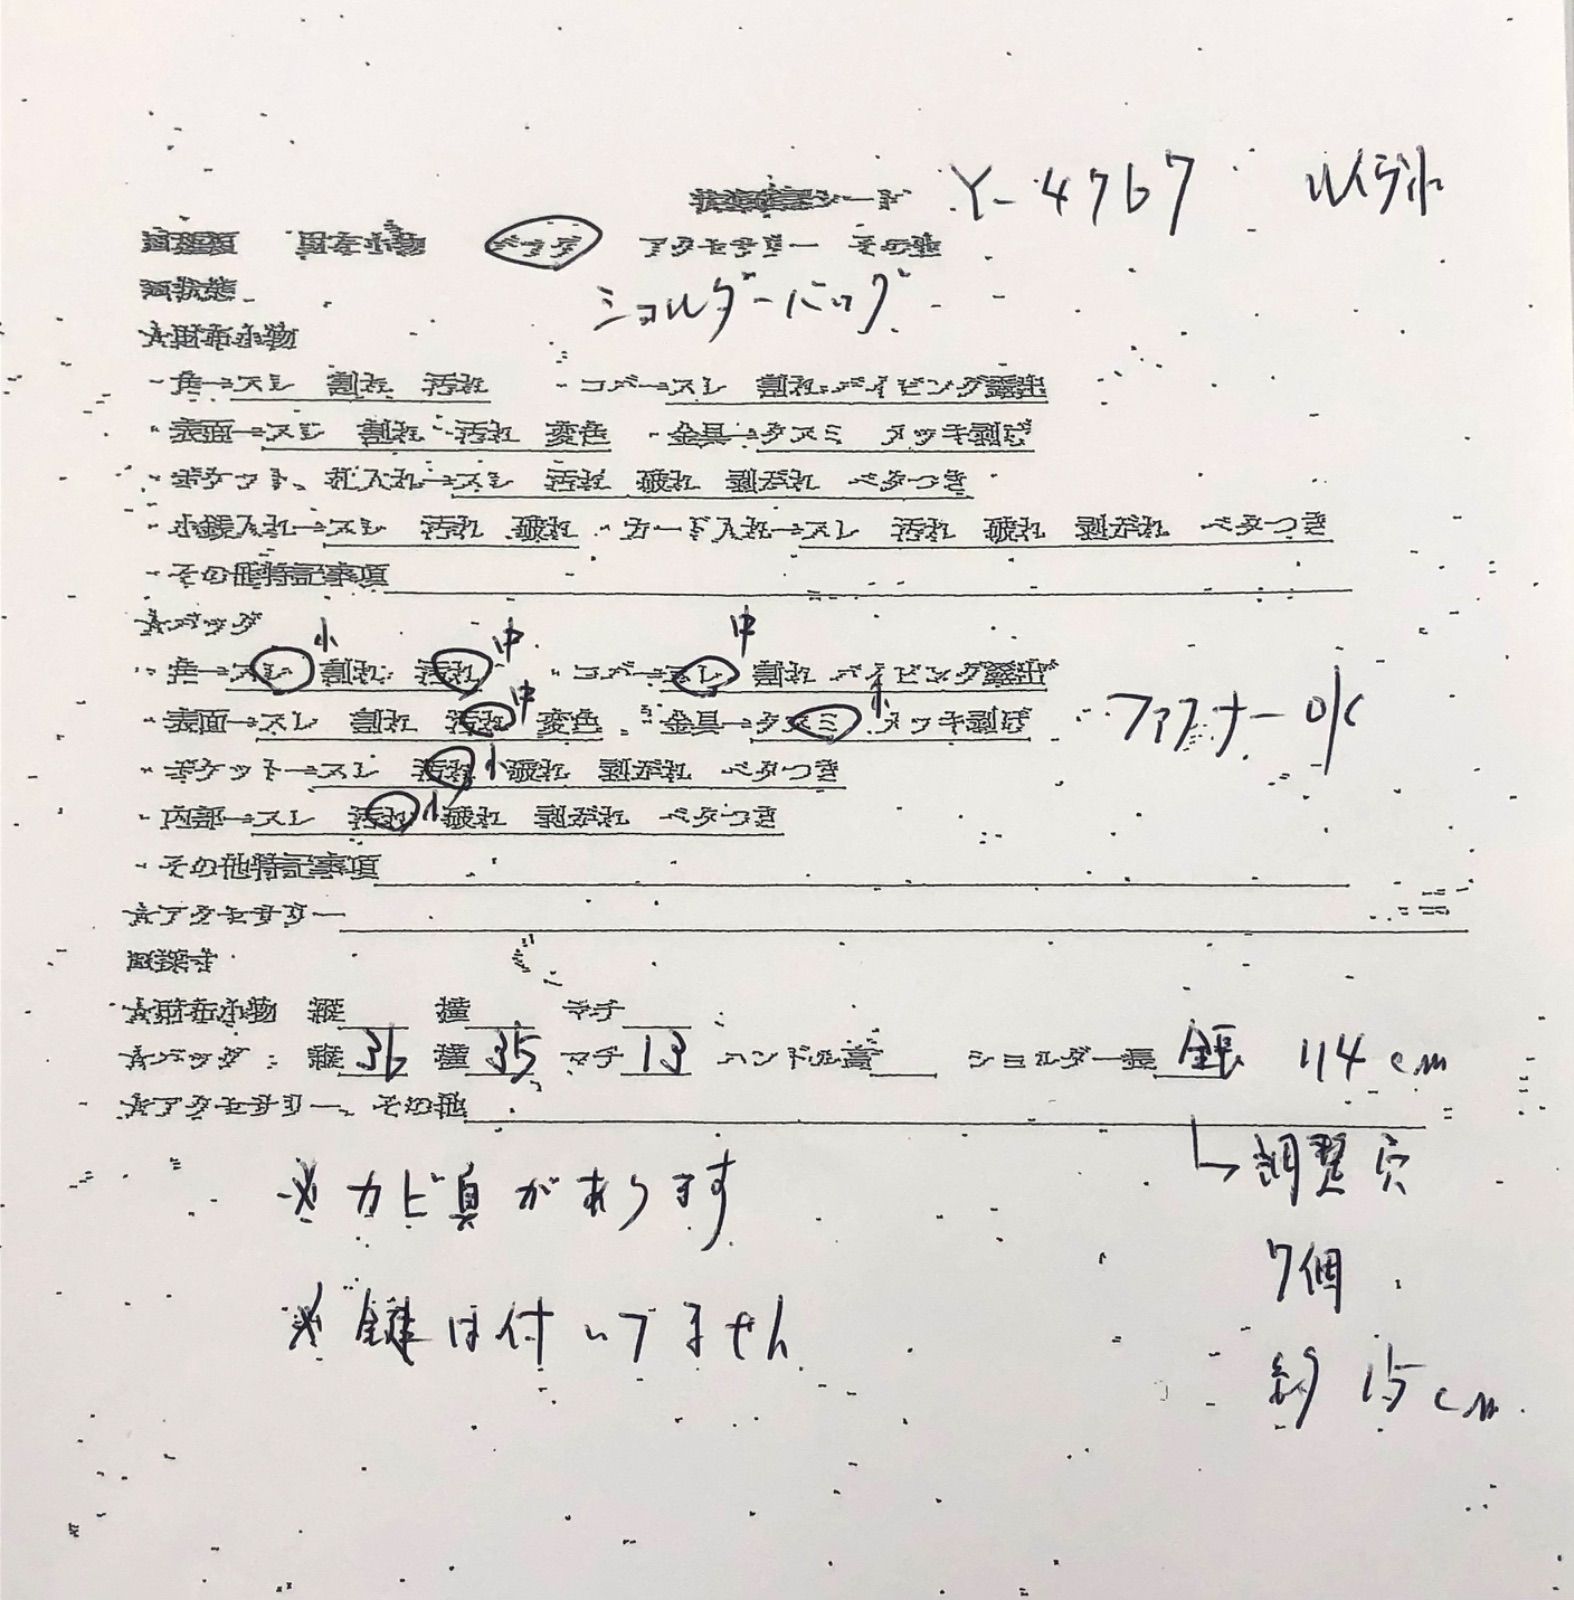 シート Y-4767 ルイヴィ
財布小物 バッグ アクセサリー その他
状態
ショルダーバッグ
☆財布小物
・角→スレ 割れ 汚れ ・コバ→スレ 割れ パイピング露出
・表面→スレ 割れ 汚れ 変色 ・金具→クスミ メッキ剥げ
・ポケット、札入れ→スレ 汚れ 破れ 剥がれ ベタつき
・小銭入れ→スレ 汚れ 破れ ・カード入れ→スレ 汚れ 破れ 剥がれ ベタつき
・その他特記事項
☆バッグ
小 中 中
・角→スレ 割れ 汚れ ・コバ→スレ 割れ パイピング露出
・表面→スレ 割れ 汚れ 中 変色 ・金具→クスミ 小 メッキ剥げ ファスナー O/K
・ポケット→スレ 汚れ 小 破れ 剥がれ ベタつき
・内部→スレ 汚れ 小 破れ 剥がれ ベタつき
・その他特記事項
☆アクセサリー
採寸
☆財布小物 縦 横 マチ
☆バッグ: 縦 36 横 35 マチ 13 ハンドル高 ショルダー長 全長 114cm
☆アクセサリー、その他
↳調整穴
※カビ臭があります
7個
※鍵は付いてません
約15cm